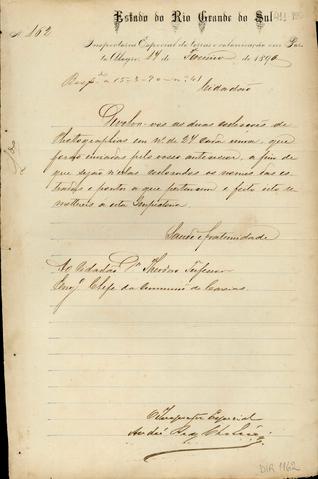 Estado do Rio Grande do Sul
Nº 162
Inspectoria Especial de terras e colonisação em Por-
to Alegre, 24 de Janeiro de 1890
Resp. a 15-3-90-nº 41
Cidadão
Devolvo-vos as duas collecções de
Photographias em nº de 24 cada uma, que
forão enviadas pelo vosso antecessor, a fim de
que sejão n'ellas declarados os nomes das es-
tradas e pontos a que pertencem e feito isto re-
mettels a esta Inspectoria
Saude e fraternidade
Ao Cidadão Dr
Engº Chefe da de Caxias
O Inspector Especial
DIR 1162